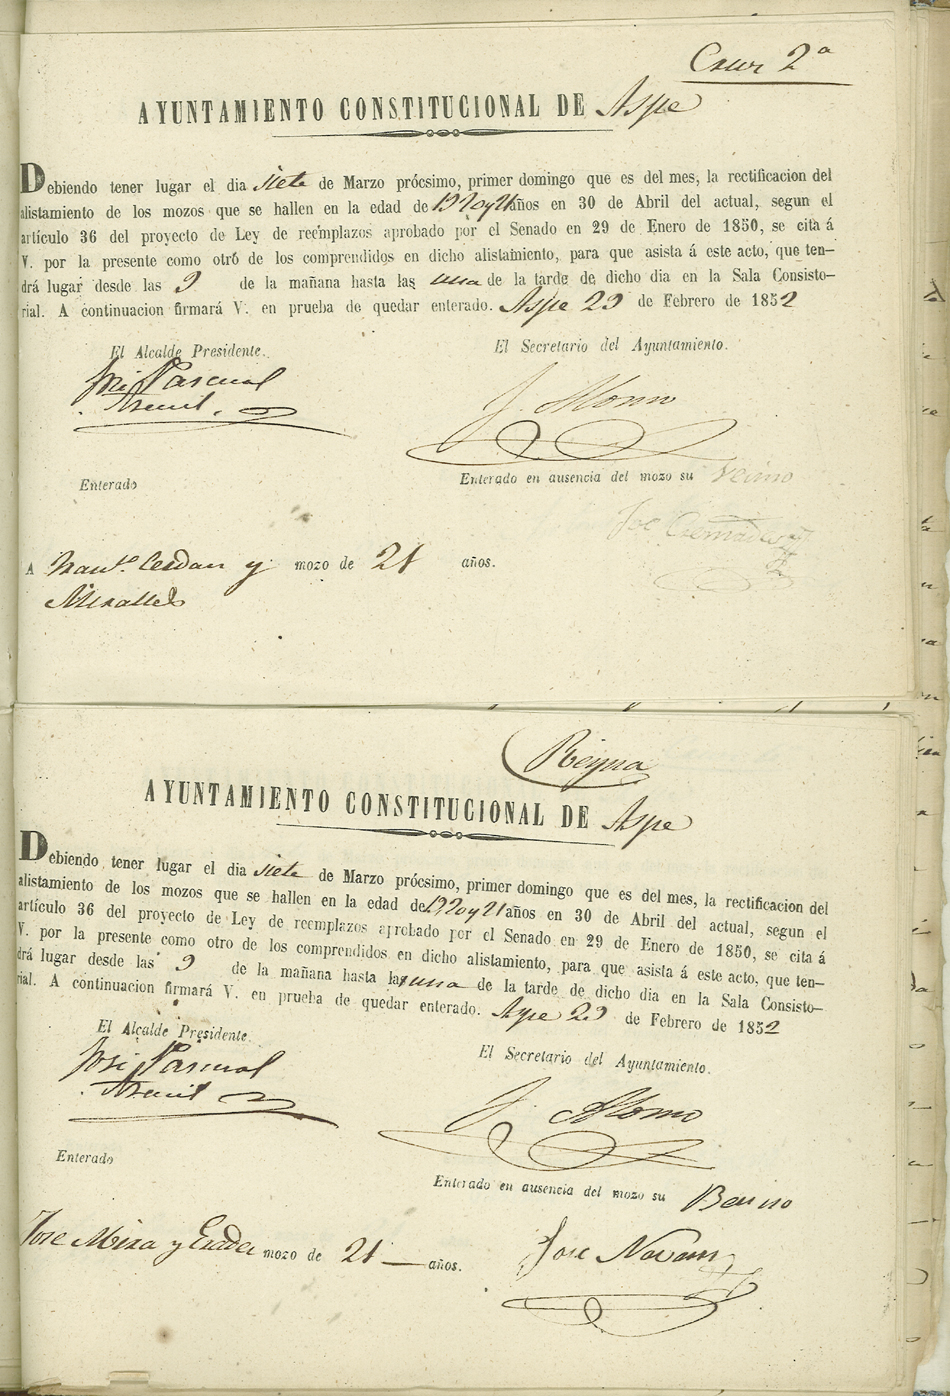 Cruz 2ª
AYUNTAMIENTO CONSTITUCIONAL DE Aspe
Debiendo tener lugar el dia siete de Marzo prócsimo, primer domingo que es del mes, la rectificacion del
alistamiento de los mozos que se hallen en la edad de 19 20 y 21 años en 30 de Abril del actual, segun el
artículo 36 del proyecto de Ley de reemplazos aprobado por el Senado en 29 de Enero de 1850, se cita á
V. por la presente como otro de los comprendidos en dicho alistamiento, para que asista á este acto, que ten-
drá lugar desde las 9 de la mañana hasta las una de la tarde de dicho dia en la Sala Consisto-
rial. A continuacion firmará V. en prueba de quedar enterado. Aspe 29 de Febrero de 1852
El Alcalde Presidente.
El Secretario del Ayuntamiento.
José Pascual
J. Alonso
Enterado
Enterado en ausencia del mozo su Vecino
Jose
A Cerdan y mozo de 21 años.
Miralles
Reyna
AYUNTAMIENTO CONSTITUCIONAL DE Aspe
Debiendo tener lugar el dia siete de Marzo prócsimo, primer domingo que es del mes, la rectificacion del
alistamiento de los mozos que se hallen en la edad de 19 20 y 21 años en 30 de Abril del actual, segun el
artículo 36 del proyecto de Ley de reemplazos aprobado por el Senado en 29 de Enero de 1850, se cita á
V. por la presente como otro de los comprendidos en dicho alistamiento, para que asista á este acto, que ten-
drá lugar desde las 9 de la mañana hasta la una de la tarde de dicho dia en la Sala Consisto-
rial. A continuacion firmará V. en prueba de quedar enterado. Aspe 29 de Febrero de 1852
El Alcalde Presidente.
El Secretario del Ayuntamiento.
José Pascual
J. Alonso
Enterado
Enterado en ausencia del mozo su
Jose Mira y mozo de 21 años.
Jose